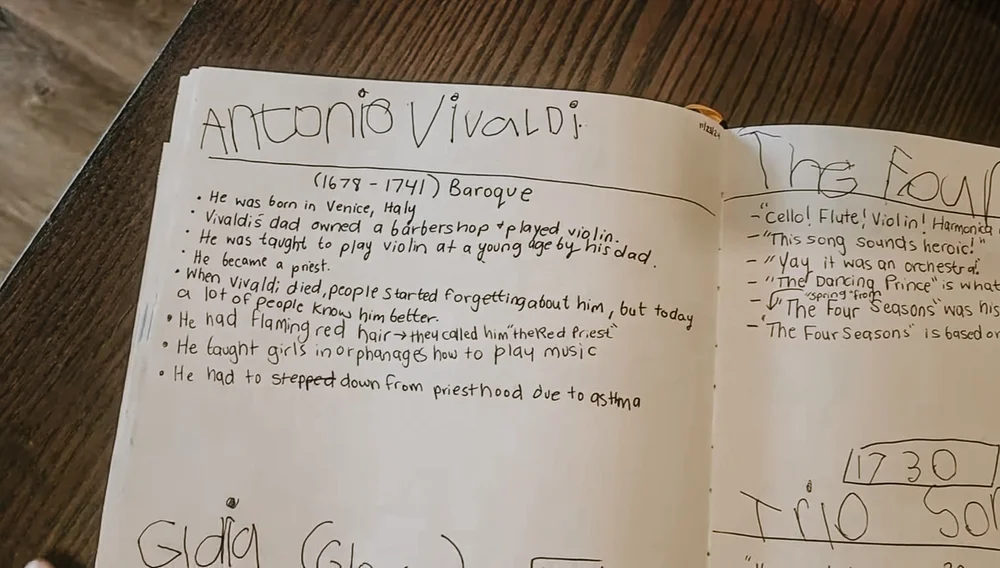 Antonio Vivaldi
(1678 - 1741) Baroque
• He was born in Venice, Italy
• Vivaldi's dad owned a barbershop + played violin.
• He was taught to play violin at a young age by his dad.
• He became a priest.
• When Vivaldi died, people started forgetting about him, but today
a lot of people know him better.
• He had flaming red hair → they called him "the Red Priest"
• He taught girls in orphanages how to play music
• He had to stepped down from priesthood due to asthma
Gloria (Glo
The Four
- "Cello! Flute! Violin! Harmonica
- "This song sounds heroic!"
- "Yay it was an orchestra!
- "The Dancing Prince" is what
"spring" from
- "The Four Seasons" was his
- "The Four Seasons" is based on
1730
Trio Son